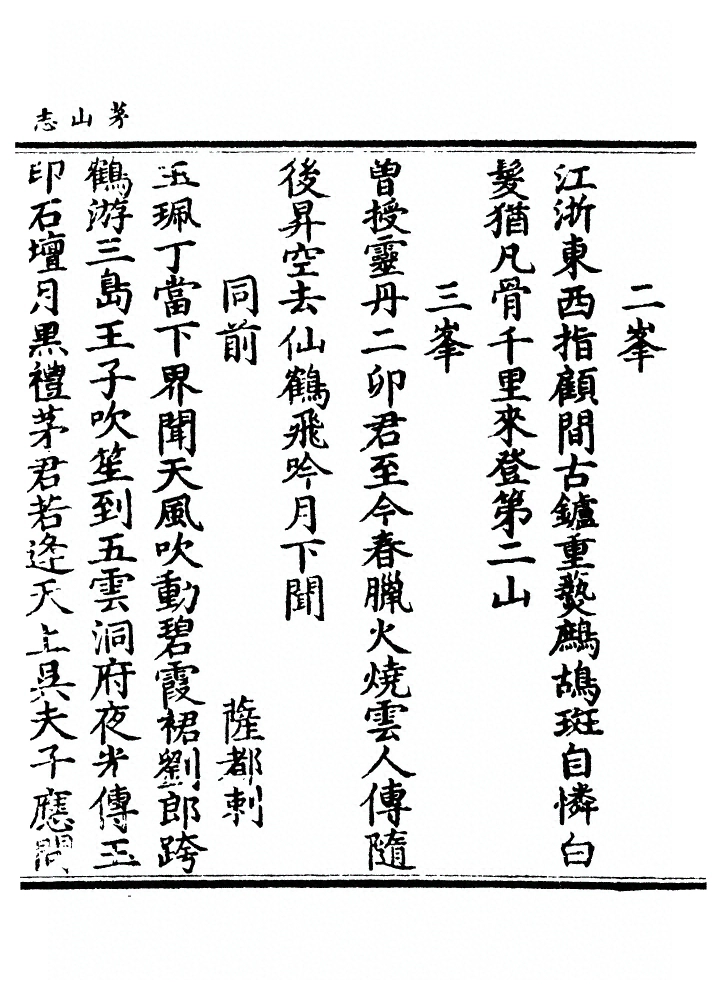 茅山志
二峯
江浙東西指顧間古鑪重爇鷓鴣斑自憐白
髮猶凡骨千里來登第二山
三峯
曽授靈丹二卯君至今春臘火燒雲人傳隨
後昇空去仙鶴飛吟月下聞
同前 薩都剌
玉珮丁當下界聞天風吹動碧霞裙劉郎跨
鶴游三島王子吹笙到五雲洞府夜光傳玉
印石壇月黒禮茅君若逢天上吳夫子應問